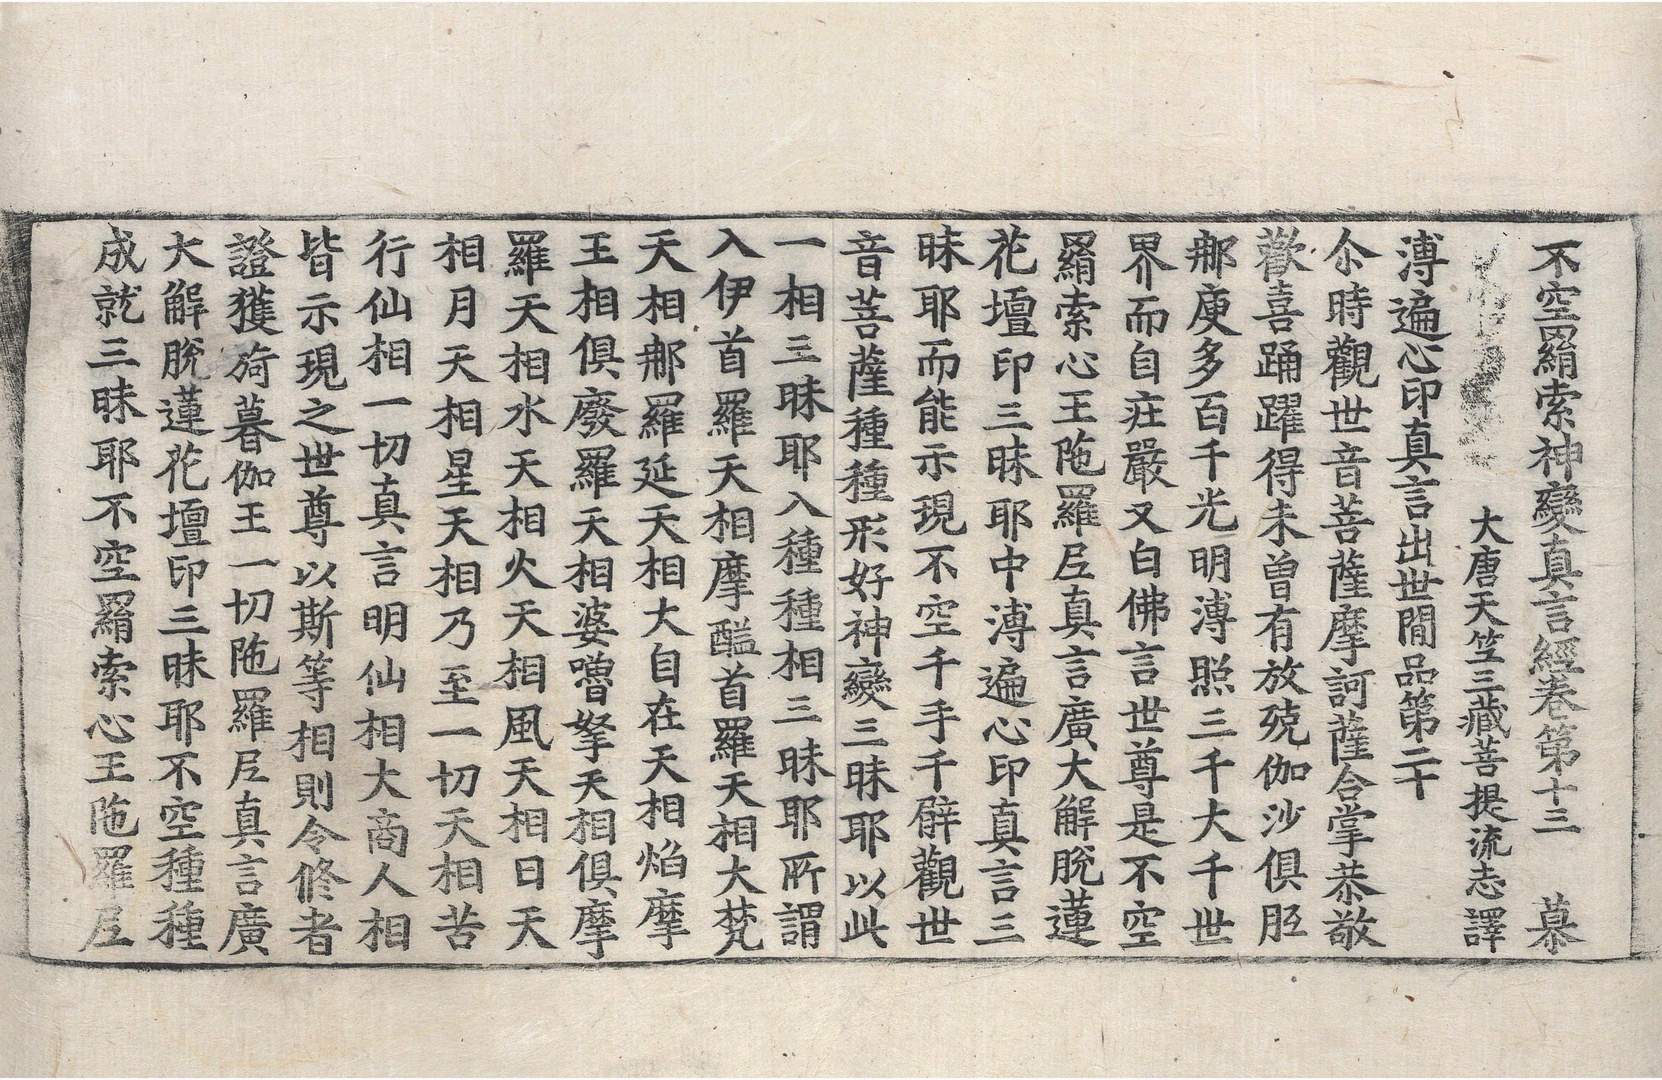 不空羂索神變真言經卷第十三 慕
大唐天竺三藏菩提流志譯
溥遍心印真言出世間品第二十
尒時觀世音菩薩摩訶薩合掌恭敬
歡喜踊躍得未曾有放殑伽沙俱胝
那庾多百千光明溥照三千大千世
界而自莊嚴又白佛言世尊是不空
羂索心王陁羅尼真言廣大解脫蓮
花壇印三昧耶中溥遍心印真言三
昧耶而能示現不空千手千臂觀世
音菩薩種種形好神變三昧耶以此
一相三昧耶入種種相三昧耶所謂
入伊首羅天相摩醯首羅天相大梵
天相那羅延天相大自在天相焰摩
王相俱廢羅天相婆嚕拏天相俱摩
羅天相水天相火天相風天相日天
相月天相星天相乃至一切天相苦
行仙相一切真言明仙相大商人相
皆示現之世尊以斯等相則令修者
證獲旖暮伽王一切陁羅尼真言廣
大解脫蓮花壇印三昧耶不空種種
成就三昧耶不空羂索心王陁羅尼